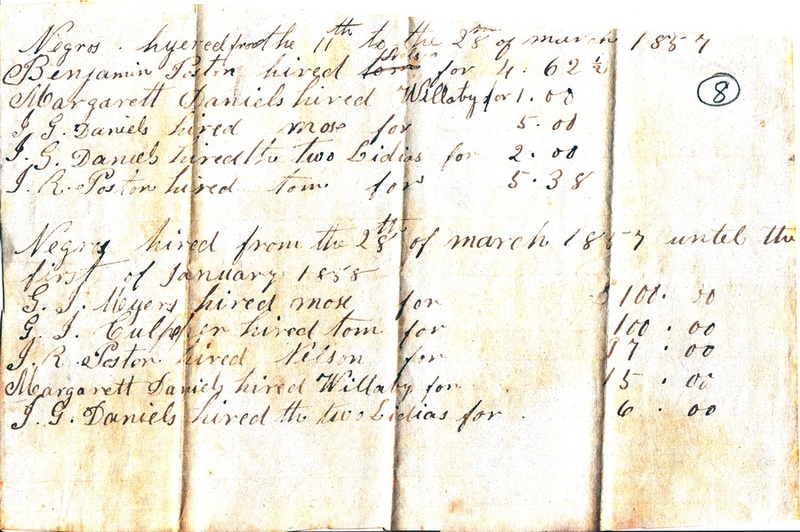 Negros . hyered from the 11th to the 28th of march 1857
Benjamin Poston hired tom Nelson for 4. 62 ½
Margarett Daniels hired Willaby for 1. 00
J G. Daniels hired mose for 5. 00
J. G. Daniels hired the two Lidias for 2. 00
J R. Poston hired tom for 5. 38
8
Negros hired from the 28th of march 1857 until the
first of January 1858
G. J. Myers hired mose for $ 100. 00
G. J. Culpeper hired tom for 100. 00
J R. Poston hired Nelson for 17. 00
Margarett Daniels hired Willaby for 15. 00
J. G. Daniels hired the two Lidias for . 6. 00